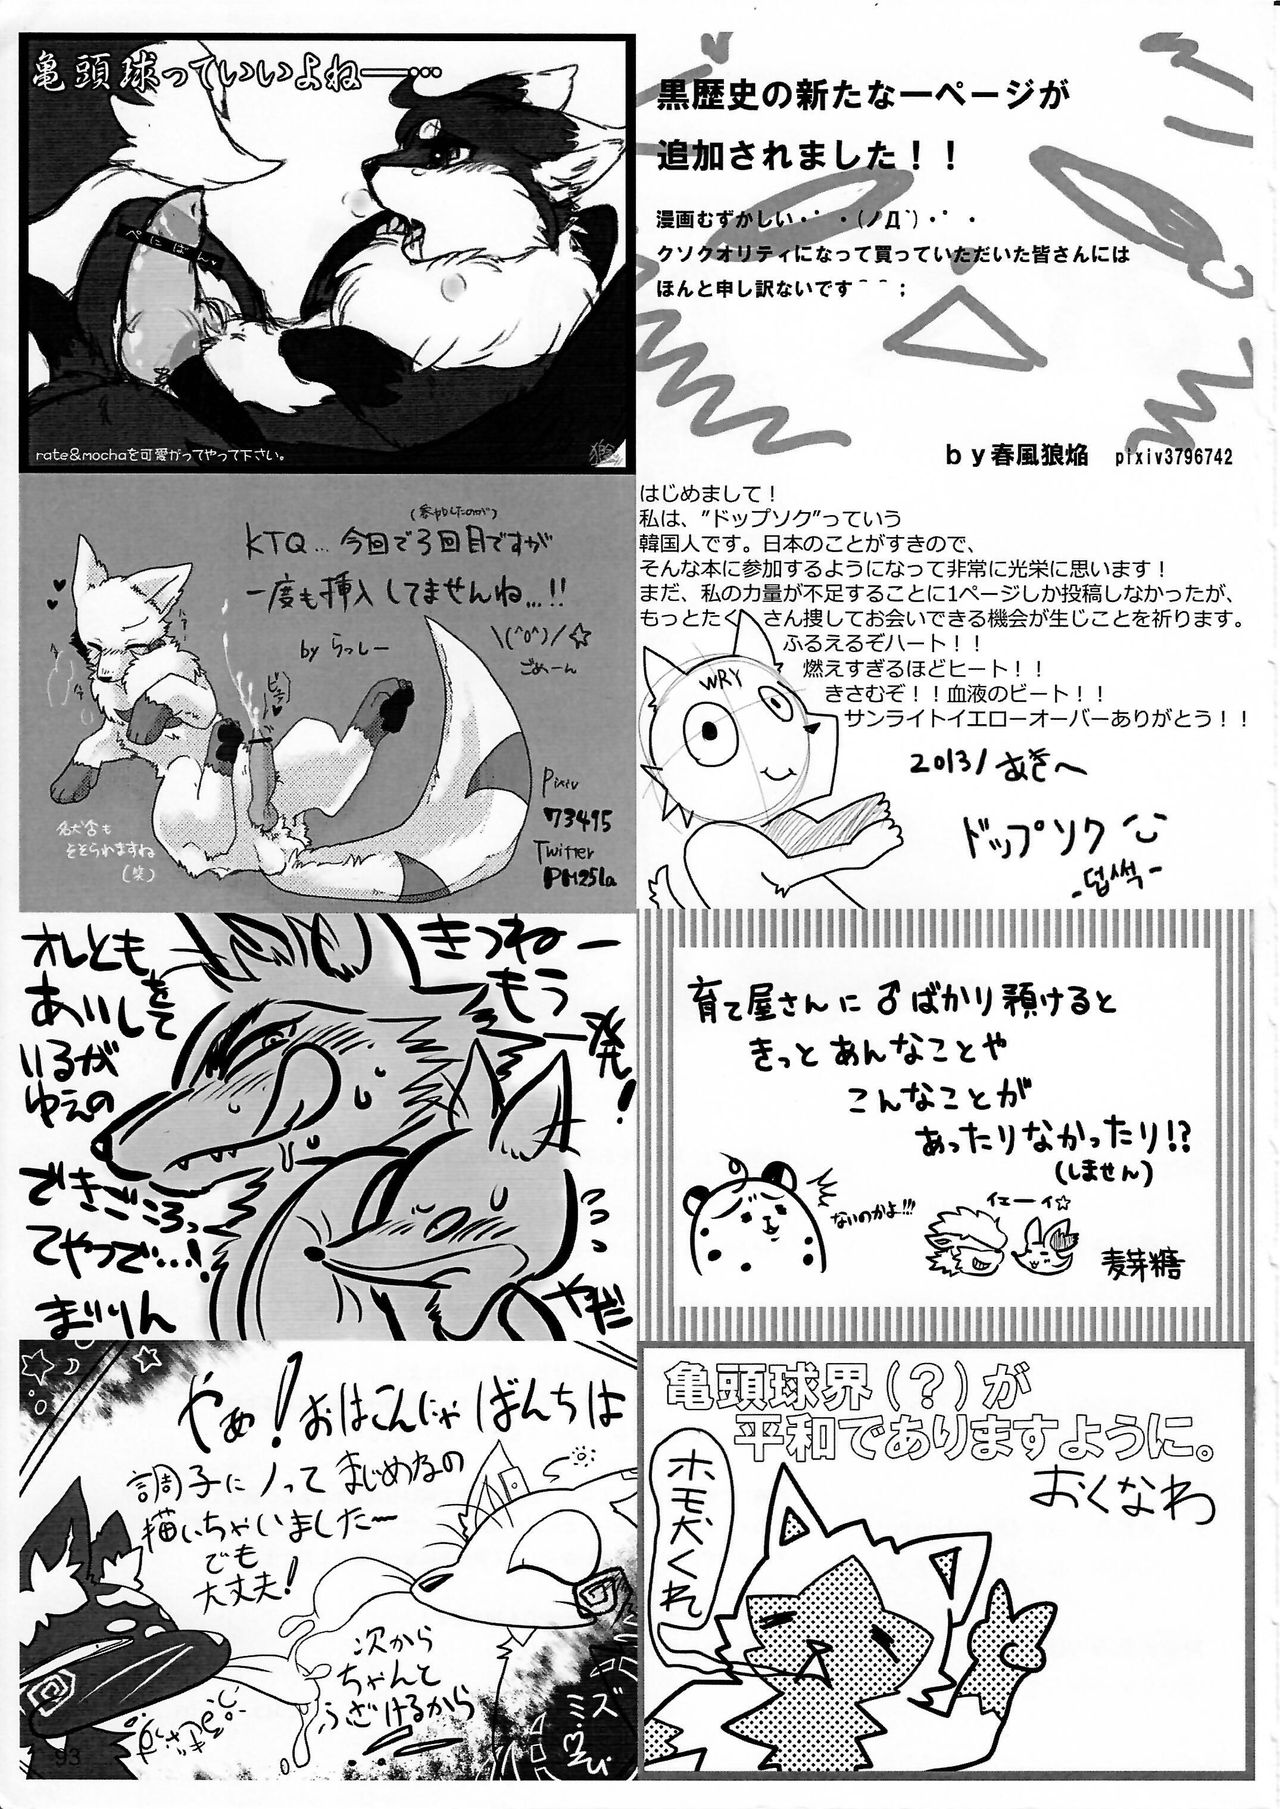 亀頭球っていいよねー…
ぺにばん
rate&mochaを可愛がってやって下さい。
黒歴史の新たな一ページが
追加されました！！
漫画むずかしい・゜・(ノД`)・゜・
クソクオリティになって買っていただいた皆さんには
ほんと申し訳ないです＾＾；
by春風狼焔 pixiv3796742
(参加したのが)
KTQ…今回で3回目ですが
一度も挿入してませんね…!!
\(^o^)/☆
by らっしー
ごめーん
ビュッ
Pixiv
73495
Twitter
PM251a
そそられますね
(笑)
はじめまして！
私は、”ドップソク”っていう
韓国人です。日本のことがすきので、
そんな本に参加するようになって非常に光栄に思います！
まだ、私の力量が不足することに1ページしか投稿しなかったが、
もっとたくさん捜してお会いできる機会が生じことを祈ります。
ふるえるぞハート！！
燃えすぎるほどヒート！！
きさむぞ！！血液のビート！！
サンライトイエローオーバーありがとう！！
WRY
2013/あきへ
ドップソク
-덥썩-
きつねー
もう
一発！
オレとも
あいしをて
いるが
ゆえの
できごころっ
てやつで…！
まりりん
やだ
育て屋さんに♂ばかり預けると
きっと あんなことや
こんなことが
あったりなかったり!?
(しません)
ないのかよ!!!
イェーイ☆
麦芽糖
やぁ！おはこんにゃばんちは
調子にノってまじめなの
描いちゃいましたー
でも
大丈夫！
次から
ちゃんと
ふざけるから
93
亀頭球界(？)が
平和でありますように。
おくなわ
ホモ犬くれ